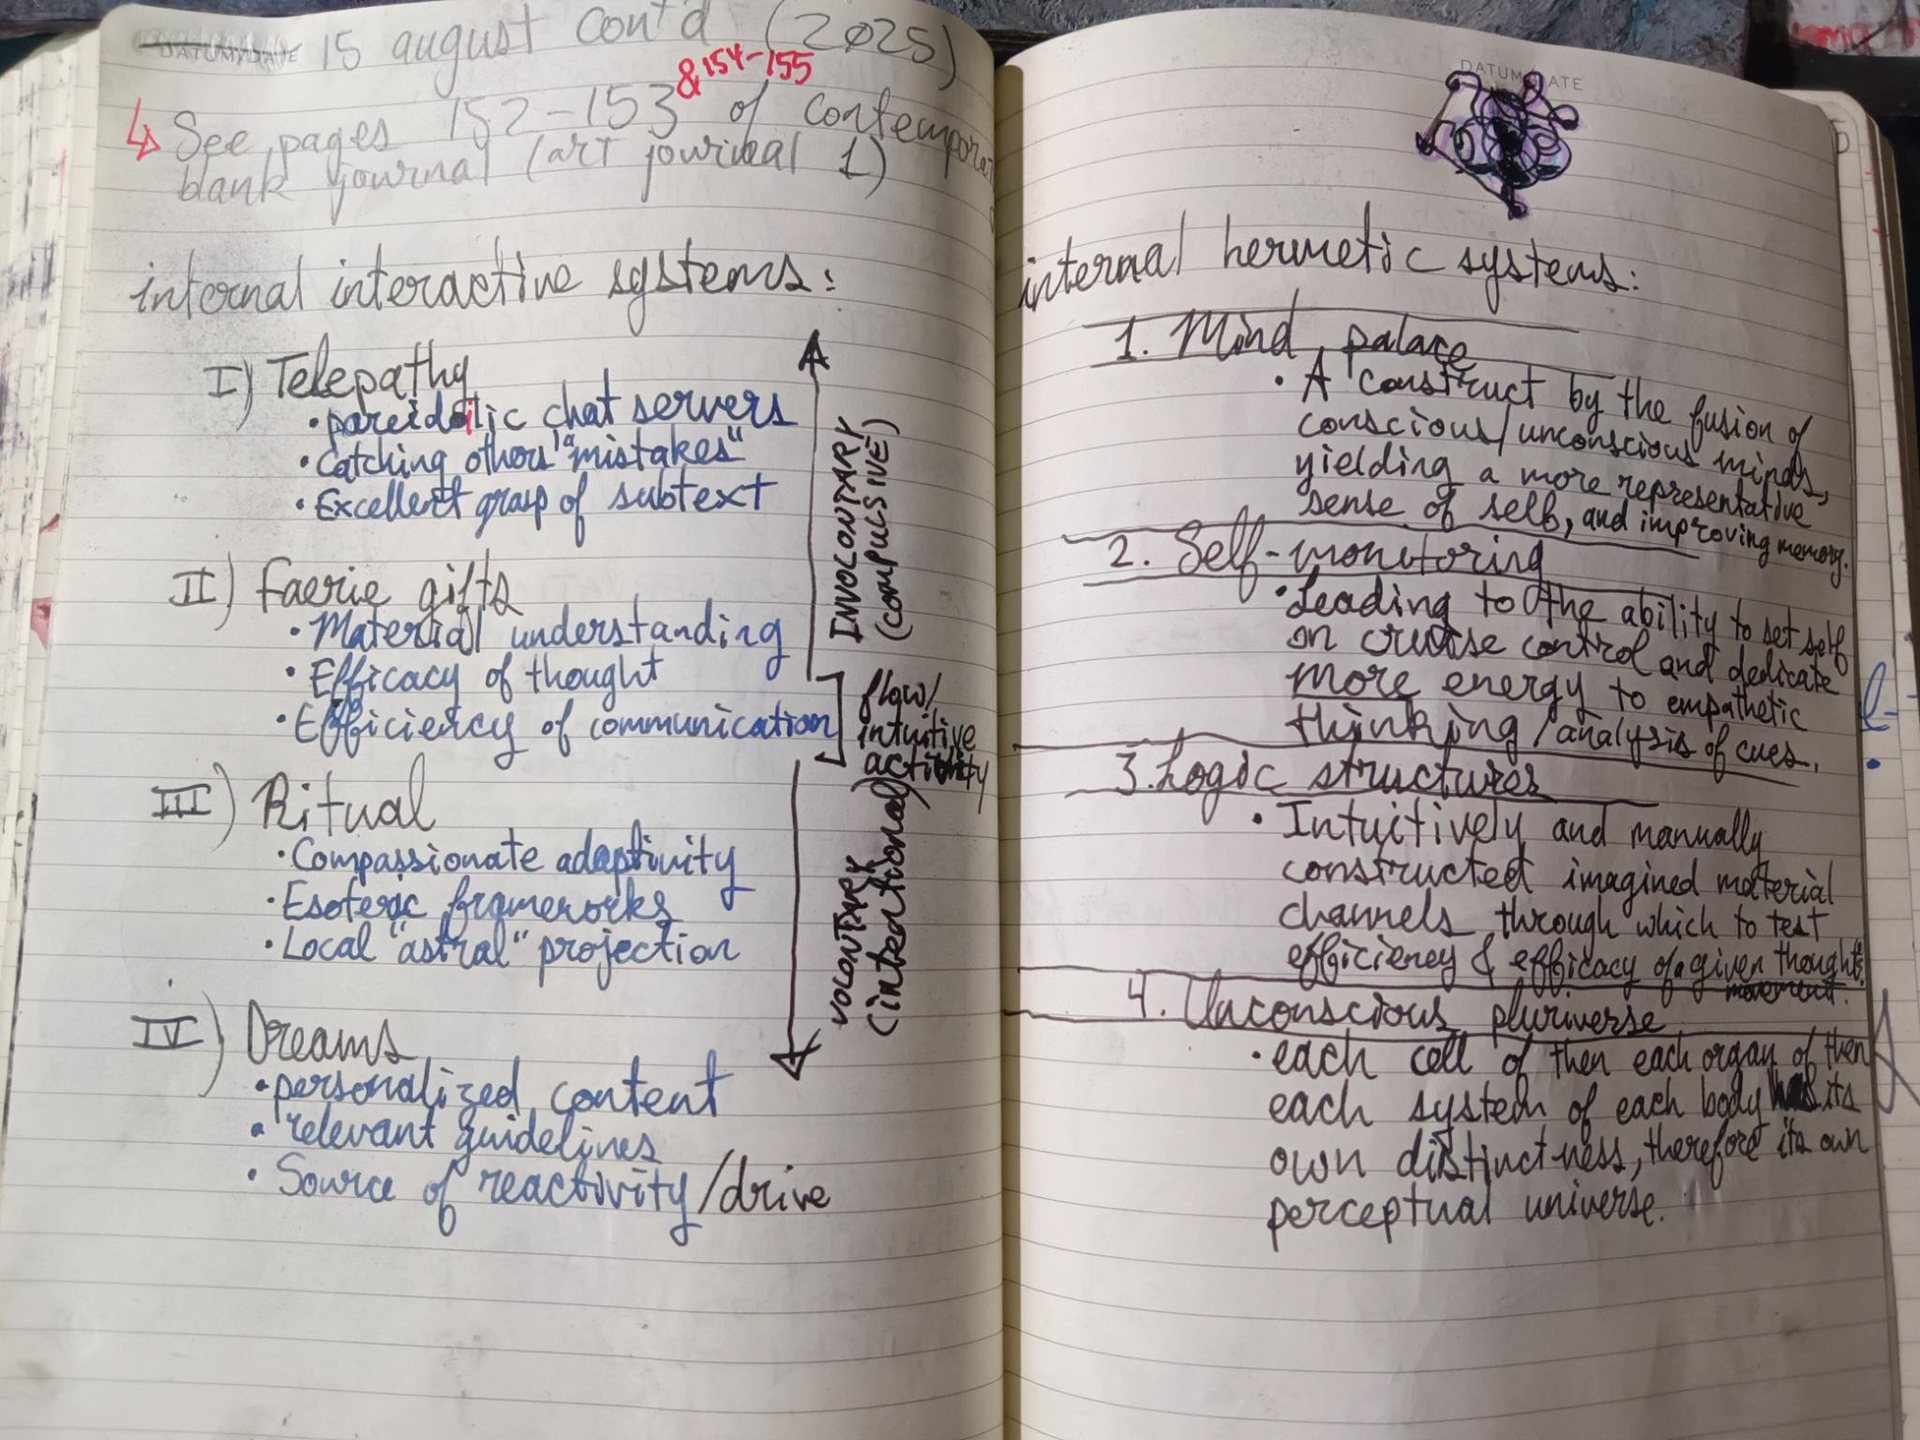 DATUM/DATE 15 august con'd (2025)
↳ See pages 152-153 & 154-155 of contempora
blank journal (art journal 1)
internal interactive systems:
I) Telepathy
• pareidoilic chat servers
• Catching others' "mistakes"
• Excellent grasp of subtext
II) Faerie gifts
• Material understanding
• Efficacy of thought
• Efficiency of communication
III) Ritual
• Compassionate adaptivity
• Esoteric frameworks
• Local "astral" projection
IV) Dreams
• personalized content
• relevant guidelines
• Source of reactivity/drive
INVOLONTARY
(COMPULSIVE)
flow/
intuitive
activity
VOLONTARY
(intentional)
DATUM/DATE
internal hermetic systems:
1. Mind palace
• A construct by the fusion of
conscious/unconscious minds,
yielding a more representative
sense of self, and improving memory.
2. Self-monitoring
• Leading to the ability to set self
on cruise control and dedicate
more energy to empathetic
thinking/analysis of cues.
3. Logic structures
• Intuitively and manually
constructed imagined material
channels through which to test
efficiency & efficacy of a given thought's
movement.
4. Unconscious pluriverse
• each cell of then each organ of then
each system of each body its
own distinctness, therefore its own
perceptual universe.